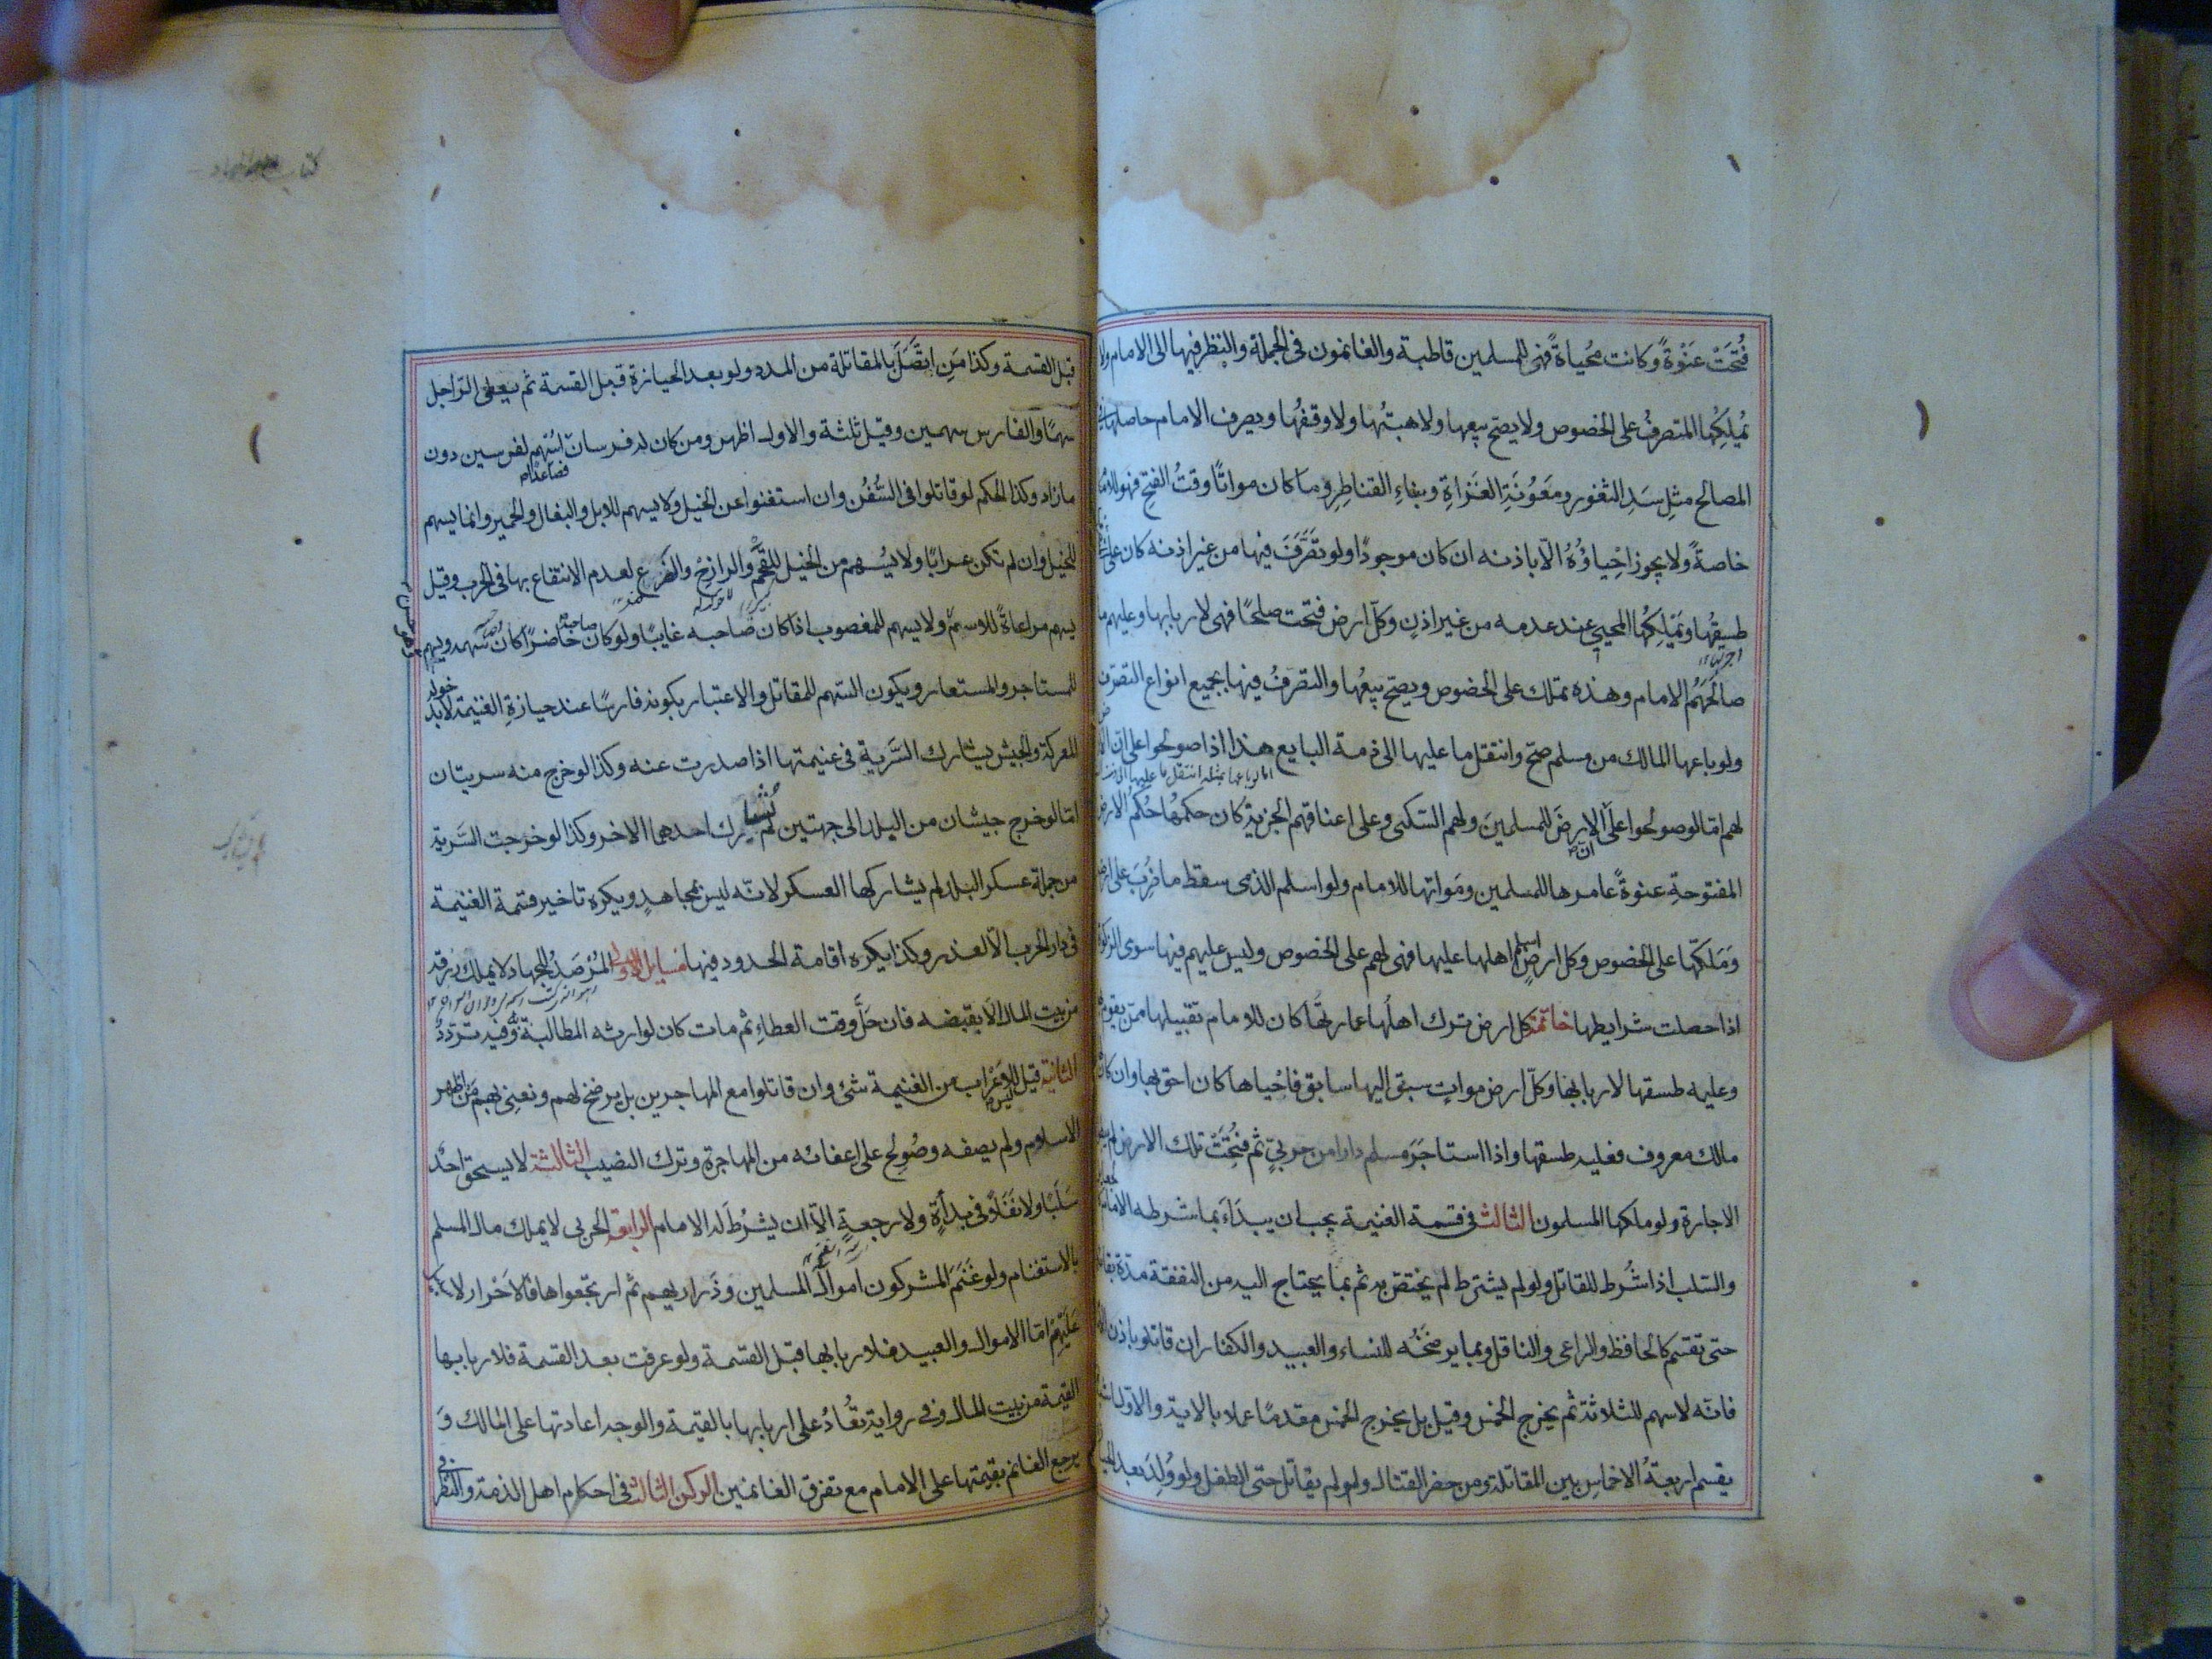 فُتحَتْ عَنْوَةً وكانت مُحياةً فهى للمسلمين قاطبة والغانمون فى الجملة والنظر فيها الى الامام ولا
يُملِكُها المتصرفُ على الخصوص ولا يصح بيعها ولا هبتُها ولا وقفُها ويصرف الامام حاصلها فى
المصالح مثلِ سَدِ الثغور ومَعَوُنَةِ الغَزاةِ وبناءِ القناطِرِ وما كان مواتًا وقتُ الفتح فهو للامام
خاصةً ولا يجوز اِحْياؤُهُ الّا باذنه ان كان موجودًا ولو تصَّرَفَ فيها من غير اذنه كان على
طسقُها ويَمْلِكُها المحيي عند عدمه من غير اذنٍ وكلّ ارض فتحت صلحًا فهى لاربابها وعليهم ما
صالَحَهُمُ الامام وهذه تملك على الخصوص ويصح بيعُها والتصرفُ فيها بجميع انواع التصرّف
ولو باعها المالك من مسلم صحّ وانتقل ما عليها الى ذمة البايع هذا اذا صولحوا على انّ الارض
لهم امّا لو صولحوا على الارضَ للمسلمينَ ولهم السكنى وعلى اعناقهم الجزية كان حكمُها حُكمُ الارض
المفتوحةِ عنوةً عامرها للمسلمين ومَواتها للامام ولو اسلم الذمى سقط ما ضُرِبَ على ارضه
ومَلَكَها على الخصوص وكل ارضٍ اسلم اهلها عليها فهى لهم على الخصوص وليس عليهم فيها سوى الزكوة
اذا حصلت شرايطها خاتمة كل ارض ترك اهلُها عمارتَها كان للامام تقبيلها ممّن يقوم
وعليه طسقها لاربابها وكلّ ارض مواتٍ سبق اليها سابق فاَحْياها كان احق بها وان كان
مالك معروف فعليه طسقها واذا استاجَرَ مسلم دارا من حربىٍّ ثم فُتِحَتْ تلك الارض لم
الاجارة ولو ملكها المسلمون الثالث فى قسمة الغنيمة يجب ان يبدَاَ بما شرطه الامام
والسّلب اذا شُرط للقاتل ولو لم يشترط لم يختصّ به ثم بما يحتاج اليه من النفقة مدة بقائها
حتى تقسّم كالحافظ والراعى والناقل وبما يرضَخُه للنساء والعبيد والكفار ان قاتلو باذن
فانّه لا سهم للثلاثة ثم يخرج الخمس وقيل بل يخرج الخمس مقدمًا عملا بالاية والاوّل
يقسم اربعةُ الاخماسِ بين المقاتلة ومن حضر القتال ولو لم يقاتل حتى الطفل ولو وُلِدَ بعد
قبل القسمة وكذا مَنِ اتصَلَ بالمقاتلة من المدد ولو بعد الحيازة قبل القسمة ثم يعطى الراجل
سهمًا والفارس سهمين وقيل ثلثة والاول اظهر ومن كان له فرسان اُسْهِم لفرسين دون
فصاعدًا
ما زاد وكذا الحكم لو قاتلوا فى السُّفُن وان استغنوا عن الخيل ولا يسهم للابل والبغال والحمير وانما يسهم
للخيل وان لم تكن عرابًا ولا يُسْهم من الخيل للقَحْمِ والرازحِ والضَرَعِ لعدم الانتفاع بها فى الحرب وقيل
يسهم مراعاةً للاسم ولا يسهم للمغصوب اذا كان صاحبه غايبًا ولو كان صاحبه حاضرًا كان سهمه ويسهم
للمستاجر والمستعار ويكون السّهم للمقاتل والاعتبار بكونه فارسًا عند حيازةِ الغنيمة لا بدخوله
المعركة والجيش يشارك السَّرية فى غنيمتها اذا صدرت عنه وكذا لو خرج منه سريتان
امّا لو خرج جيشان من البلد الى جهتين لم يشارك احدهما الاخر وكذا لو خرجت السَّرية
من جملة عسكر البلد لم يشاركها العسكر لانّه ليس بمجاهدٍ ويكره تاخير قسمة الغنيمة
فى دار الحرب الّا لعذر وكذا يكره اقامة الحدود فيها مسايل الاولى المُرْصَدُ للجهاد لا يملك رزقه
من بيت المال الّا بقبضه فان حَلَّ وقت العطاءِ ثم مات كان لوارثه المطالبة وفيه تردّدٌ
الثانية قيل ليس للاَعْراب من الغنيمة شئ وان قاتلوا مع المهاجرين بل يرضخ لهم ونعنِى بهم مَن اظهر
الاسلام ولم يصفه وصُولِح على اِعفائه من المهاجرة وترك النصيب الثالثة لا يستحق احدٌ
سَلَبًا ولا نَفَلًا فى بدأةٍ ولا رجعةٍ الّا ان يشرُطَ له الامام الرابعة الحربى لا يملك مال المسلم
بالاستغنام ولو غَنَمَ المشركون اموالَ المسلمين وذَراريهم ثم ارتجعوها فالاَحْرار لا سبيل
عَلَيْهِمْ امّا الاموال والعبيد فلاربابها قبل القسمة ولو عرفت بعد القسمة فلاربابها
القيمة من بيت المال وفى رواية تُعادُ على اربابها بالقيمة والوجه اعادتها على المالك وَ
يرجع الغانم بقيمتها على الامام مع تفرق الغانمين الركن الثالث فى احكام اهل الذمة والنظر فى